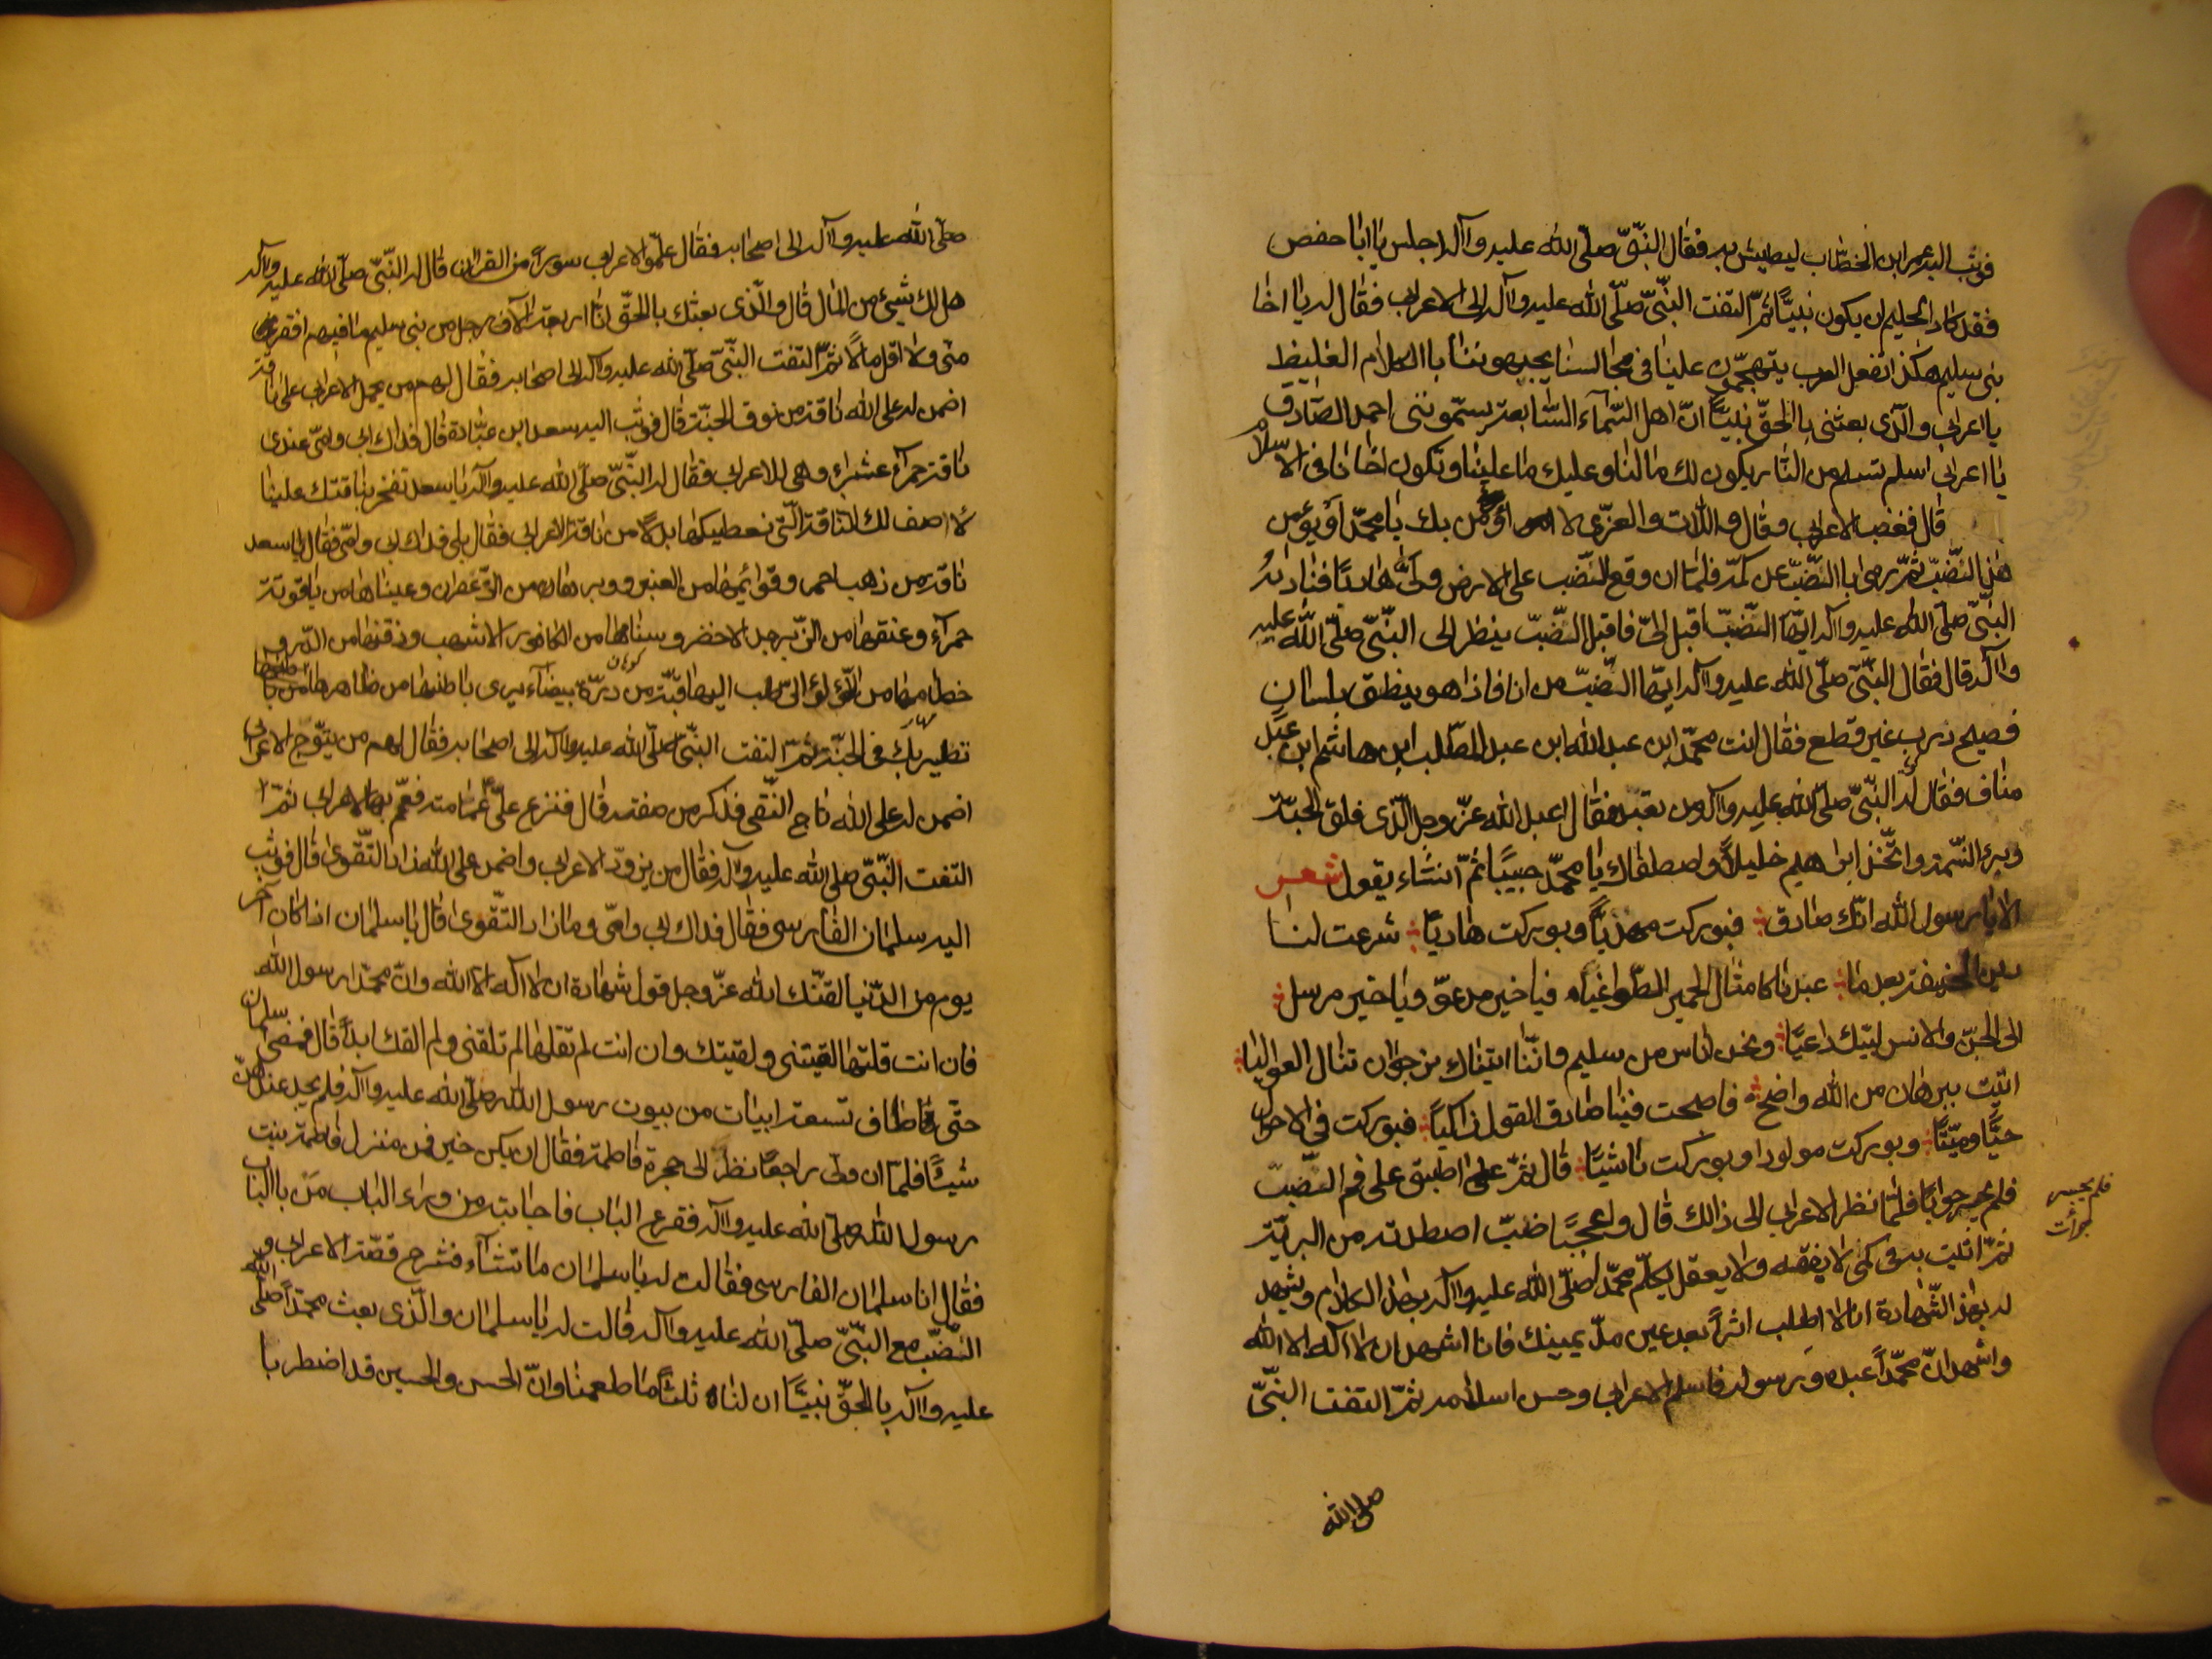 فوثب اليه عمر ابن الخطّاب ليطيش به فقال النبّىّ صلّى الله عليه واآله اجلس يا ابا حفص
فقد كاد الحليم ان يكون نبيّاً ثمّ التفت النبّىّ صلّى الله عليه واآله الى الاعرابى فقال له يا اخا
بنى سليم هكذا تفعل العرب يتهجّمون علينا فى مجالسنا يجبهوننا باالكلام الغليظ
يا اعرابى والّذى بعثنى بالحقّ نبيّاً انّ اهل السّمآء السّابعة يسمّوننى احمد الصّادق
يا اعرابى اسلم تسلم من النّار يكون لك ما لنا وعليك ما علينا وتكون اخانا فى الاسلام
قال فغضب الاعرابى وقال واللات والعزّى لا اومن بك يا محمّد او يؤمن
هذا الضّبّ ثمّ رمى باالضّبّ عن كمّه فلمّا ان وقع الضّب على الارض ولّى هاربًا فناداهُ
النبّىّ صلّى الله عليه واآله ايّها الضّبّ اقبل الىّ فاقبل الضّبّ ينظر الى النبّىّ صلّى الله عليه
واآله قال فقال النبّىّ صلّى الله عليه واآله ايّها الضّبّ من انا فاذا هو ينطق بلسان
فصيح ذرب غير قطع فقال انت محمّد ابن عبد الله ابن عبد المطّلب ابن هاشم ابن عبد
مناف فقال له النبّىّ صلّى الله عليه واآله من تعبد فقال اعبد الله عزّ وجل الّذى فلق الحبّة
وبرء النّسمة واتّخذ ابراهيم خليلاً واصطفاك يا محمّد حبيبًا ثمّ انشاء يقول شعر
الا يا رسول الله انّك صادق فبوركت مهديّاً وبوركت هاديًا شرعت لنا
دين الحنيفة بعد ما عبدنا كامثال الحمير الطّواغيا فيا خير مدعوّ ويا خير مرسل
الى الجنّ والانس لبّيك داعيًا ونحن اناس من سليم واننّا اتيناك نرجوا ان تنال العواليا
اتيت ببرهان من الله واضح فاصبحت فينا صادق القول زاكياً فبوركت فى الاحوال
حيّاً وميّتًا وبوركت مولودا وبوركت ناشيًا قال ثمّ اطبق على فم الضّبّ
فلم يحر جوابًا فلمّا نظر الاعرابى الى ذالك قال واعجبًا ضبّ اصطدته من البريّة
ثمّ اتيت به فى كمّى لا يفقه ولا يعقل يكلّم محمّدا صلّى الله عليه واآله بهذا الكلام ويشهد
له بهذه الشّهادة انا لا اطلب اثراً بعد عين مدّ يمينك فانا اشهد ان لا اله الا الله
واشهد انّ محمّداً عبده ورسوله فاسلم الاعرابى وحسن اسلامه ثمّ التفت النبّىّ
فلم يجبه
صلى الله
صلّى الله عليه واآله الى اصحابه فقال علّموا الاعرابى سورة من القرآن قال له النبّىّ صلّى الله عليه واآله
هل لك شيئ من المال قال والّذى بعثك بالحقّ انّا اربعة آلآف رجل من بنى سليم ما فيهم افقر
منى ولا اقل مالًا ثمّ التفت النبّىّ صلّى الله عليه واآله الى اصحابه فقال لهم من يحمل الاعرابى على ناقة
اضمن له على الله ناقة من نوق الجنّة قال فوثب اليه سعد ابن عبّادة قال فداك ابى وامّى عندى
ناقة حمرآء عشرآء وهى للاعرابى فقال له النبّىّ صلّى الله عليه واآله يا سعد تفخر بناقتك علينا
لا اصف لك الناقة الّتى نعطيكها بدلًا من ناقة الاعرابى فقال بلى فداك ابى وامّى فقال يا سعد
ناقة من ذهب احمر وقوآئمها من العنبر ووبرها من الزّعفران وعيناها من ياقوتة
حمرآء وعنقها من الزّبرجد الاخضر وسنامها من الكافور الاشهب وذقنها من الدّر و
كوهان
خطامها من اللّؤلؤ الرّطب اليها قبّة من درّة بيضآء يرى باطنها من ظاهرها وظاهرها من باطنها
تطير بك فى الجنّة ثمّ التفت النبّى صلّى الله عليه واآله الى اصحابه فقال لهم من يتوّج الاعرابى
اضمن له على الله تاج التّقى فذكر من صفته قال فنزع علىّ عمامته فعمّم بها الاعرابى ثمّ
التفت النبّىّ صلى الله عليه واآله فقال من يزوّد الاعرابى واضمن على الله زاد التّقوى قال فوثب
اليه سلمان الفارسى فقال فداك ابى وامّى وما زاد التّقوى قال يا سلمان اذا كان آخر
يوم من الدّنيا لقنّك الله عزّ وجل قول شهادة ان لا اله الا الله وانّ محمّدا رسول الله
فان انت قلتها لقيتنى ولقيتك وان انت لم تقلها لم تلقنى ولم القك ابداً قال فمضى سلمان
حتّى طاف تسعة ابيات من بيوت رسول الله صلّى الله عليه واآله فلم يجد عندهنّ
شيئًا فلمّا ان ولّى راجعًا نظر الى حجرة فاطمة فقال ان يكن خير فمن منزل فاطمة بنت
رسول الله صلّى الله عليه واآله فقرع الباب فاجابته من ورآء الباب من باالباب
فقال انا سلمان الفارسى فقالت له يا سلمان ما تشآء فشرح قصّة الاعرابى و
الضّبّ مع النبّىّ صلّى الله عليه واآله قالت له يا سلمان والّذى بعث محمّداً صلّى الله
عليه واآله بالحقّ نبيًّا ان لناه ثلثاً ما طعمنا وانّ الحسن والحسين قد اضطربا